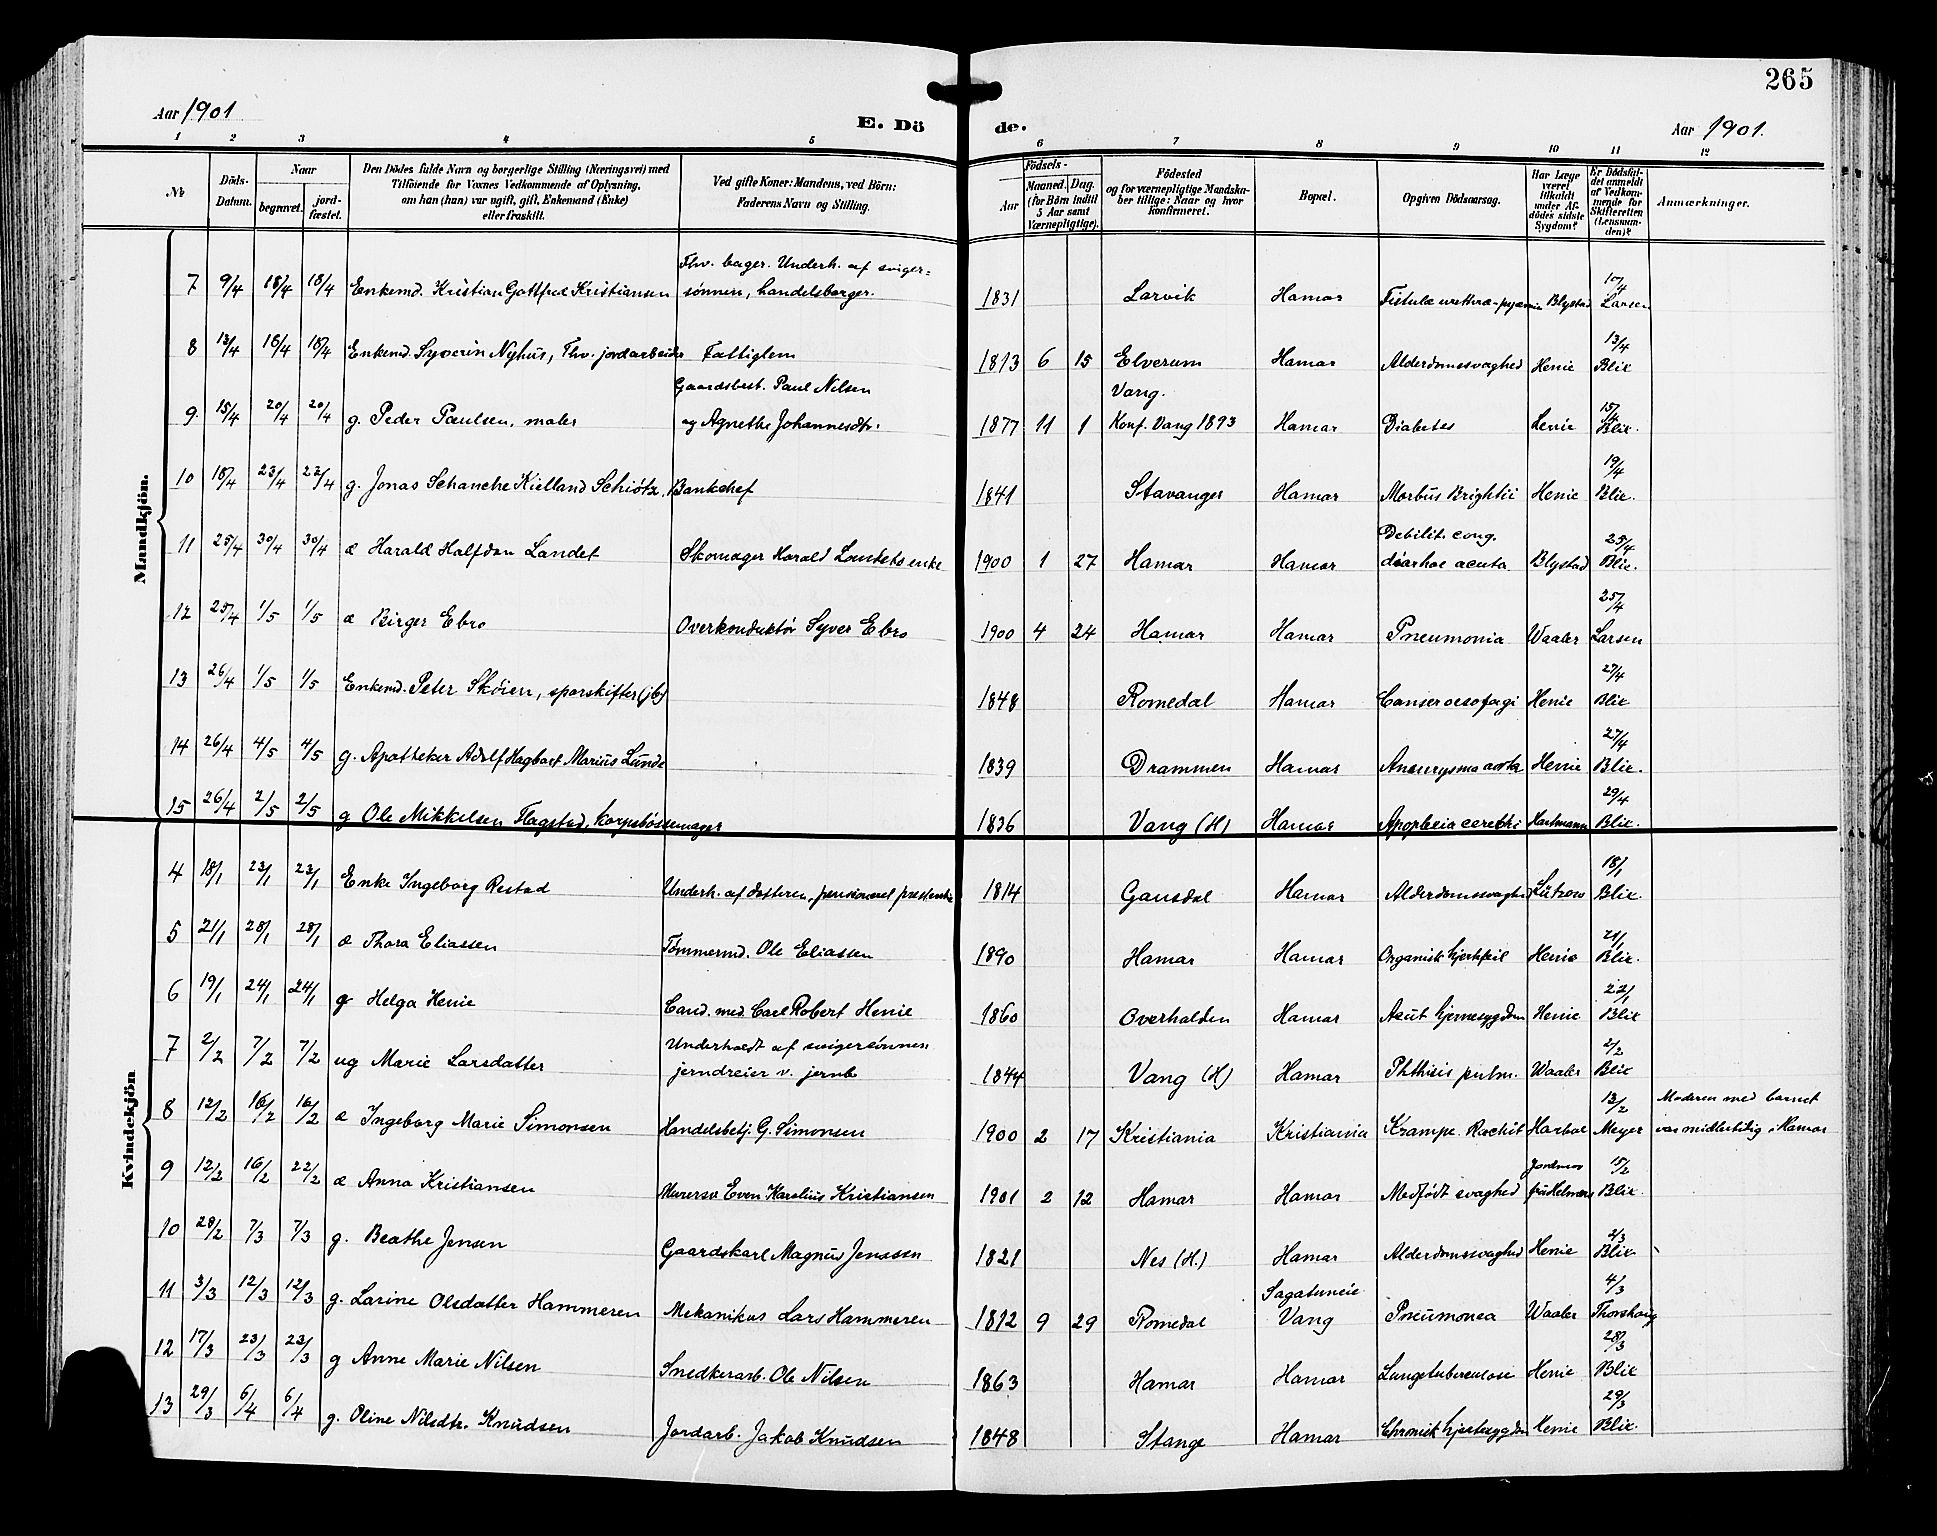 265
Aar 1901
E. Dö de.
Aar 1901.
1 2 3 4 5 6 7 8 9 10 11 12
№
Döds-Datum.
Naar
begravet.
jord-fæstet.
Den Dödes fulde Navn og borgerlige Stilling (Næringsvei) med
Tilföiende for Voxnes Vedkommende af Oplysning,
om han (hun) var ugift, gift, Enkemand (Enke)
eller fraskilt.
Ved gifte Koner: Mandens, ved Börn:
Faderens Navn og Stilling.
Födsels-
Aar
Maaned. Dag.
(for Börn indtil
5 Aar samt
Værnepligtige).
Födested
og for værnepligtige Mandska-
ber tillige: Naar og hvor
konfirmeret.
Bopæl.
Opgiven Dödsaarsag.
Har Læge
været
tilkaldt
under Af-
dödes sidste
Sygdom?
Er Dödsfal-
det anmeldt
af Vedkom-
mende for
Skifteretten
(Lensman-
den)?
Anmærkninger.
Mandkjön.
7 9/4 18/4 18/4 Enkemd. Kristian Gottfred Kristiansen Fhv. bager. Underh. af sviger=
sønnen, handelsborger. 1831 Larvik Hamar Fistula urethra-pyæmie Blystad 10/4 Larsen
8 13/4 18/4 18/4 Enkemd. Syverin Nyhus, Fhv. jordarbeider Fattiglem 1813 6 15 Elverum Hamar Alderdomssvaghed Henie 13/4 Blix
9. 15/4 20/4 20/4 g. Peder Paulsen, maler Gaardsbest. Paul Nilsen
og Agnethe Johannesdtr. 1877 11 1 Vang.
Konf. Vang 1893 Hamar Diabetes Henie 15/4 Blix.
10 18/4 23/4 23/4 g. Jonas Schanche Kielland Schiötz, Bankchef 1841 Stavanger Hamar Morbus Brightii Henie 19/4 Blix.
11 25/4 30/4 30/4 æ Harald Halfdan Landet Skomager Harald Landets enke 1900 1 27 Hamar Hamar Debilit. cong.
diarhoe acuta Blystad 25/4 Blix.
12 25/4 1/5 1/5 æ Birger Ebro Overkonduktör Syver Ebro 1900 4 24 Hamar Hamar Pneumonia Waaler 25/4 Larsen
13 26/4 1/5 1/5 Enkemd. Peter Skøien, sporskifter (jb) 1848 Romedal Hamar Canser oesofagi Henie 27/4 Blix
14 26/4 4/5 4/5 g. Apotheker Adolf Hagbart Marius Lunde 1839 Drammen Hamar Aneurysma aorta Henie 27/4 Blix.
15 26/4 2/5 2/5 g Ole Mikkelsen Flagstad, korpsbössemager 1836 Vang (H) Hamar Apoplexia cerebri Hartmann 29/4 Blix.
Kvindekjön
4 18/1 23/1 23/1 Enke Ingeborg Restad Underh. af datteren, pensioneret prestenke 1814 Gausdal Hamar Alderdomssvaghed Lützow 18/1 Blix.
5 21/1 28/1 28/1 æ Thora Eliassen Tømmermd. Ole Eliassen 1890 Hamar Hamar Organisk hjertfeil Henie 21/1 Blix.
6 19/1 24/1 24/1 g Helga Henie Cand. med. Carl Robert Henie 1860 Overhalden Hamar Acut hjernesygdom Henie 22/1 Blix
7 2/2 7/2 7/2 ug Marie Larsdatter Underholdt af svigersønnen
jerndreier v. jernb 1844 Vang (H) Hamar Phthisis pulm. Waaler 2/2 Blix
8 12/2 16/2 16/2 æ Ingeborg Marie Simonsen Handelsbetj. G. Simonsen 1900 2 17 Kristiania Kristiania Krampe. Rachit Harboe 13/2 Meyer Moderen med barnet
var midlertidig i Hamar
9 12/2 16/2 22/2 æ Anna Kristiansen Murersv Even Karelius Kristiansen 1901 2 12 Hamar Hamar Medfödt svaghed Jordmor 15/2 Blix.
10 28/2 7/3 7/3 g. Beathe Jensen Gaardskarl Magnus Jenssen 1821 Nes (H.) Hamar Alderdomssvaghed Henie 2/3 Blix
11 3/3 12/3 12/3 g. Larine Olsdatter Hammeren Mekanikus Lars Hammeren 1812 9 29 Romedal Sagatuneie
Vang Pneumonea Waaler 4/3 Thorshaug
12 17/3 23/3 23/3 g Anne Marie Nilsen Snedkerarb. Ole Nilsen 1863 Hamar Hamar Lungetuberculose Henie 28/3 Blix
13 29/3 6/4 6/4 g. Oline Nilsdtr. Knudsen Jordarb. Jakob Knudsen 1848 Stange Hamar Chronisk hjertesygdom Henie 29/3 Blix.